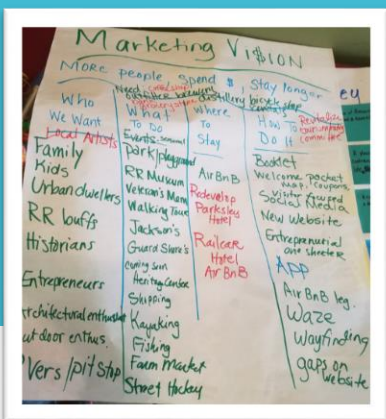 Marketing Vi$ion
More people, Spend $, Stay longer
Need
distillery bicycle
Who
We Want
Local Artists
Family
Kids
Urban dwellers
RR buffs
Historians
Entrepreneurs
architectural enthusiast
outdoor enthus.
/pit stop
What
To Do
Events-seasonal
Park/playground
RR Museum
Veteran's Mem
Walking Tour
Jackson's
Guard Shore's
coming soon
Heritage Center
Shipping
Kayaking
Fishing
Farm Market
Street Hockey
Where
To
Stay
Air BnB
Redevelop
Parksley
Hotel
Railcar
Hotel
Air BnB
How To
Do It
Revitalize
committee
Booklet
Welcome packet
map, coupons,
visitor focused
Social Media
New Website
Entrepreneurial
one sheeter
APP
Air BnB leg.
Waze
Wayfinding
gaps on
website
ey